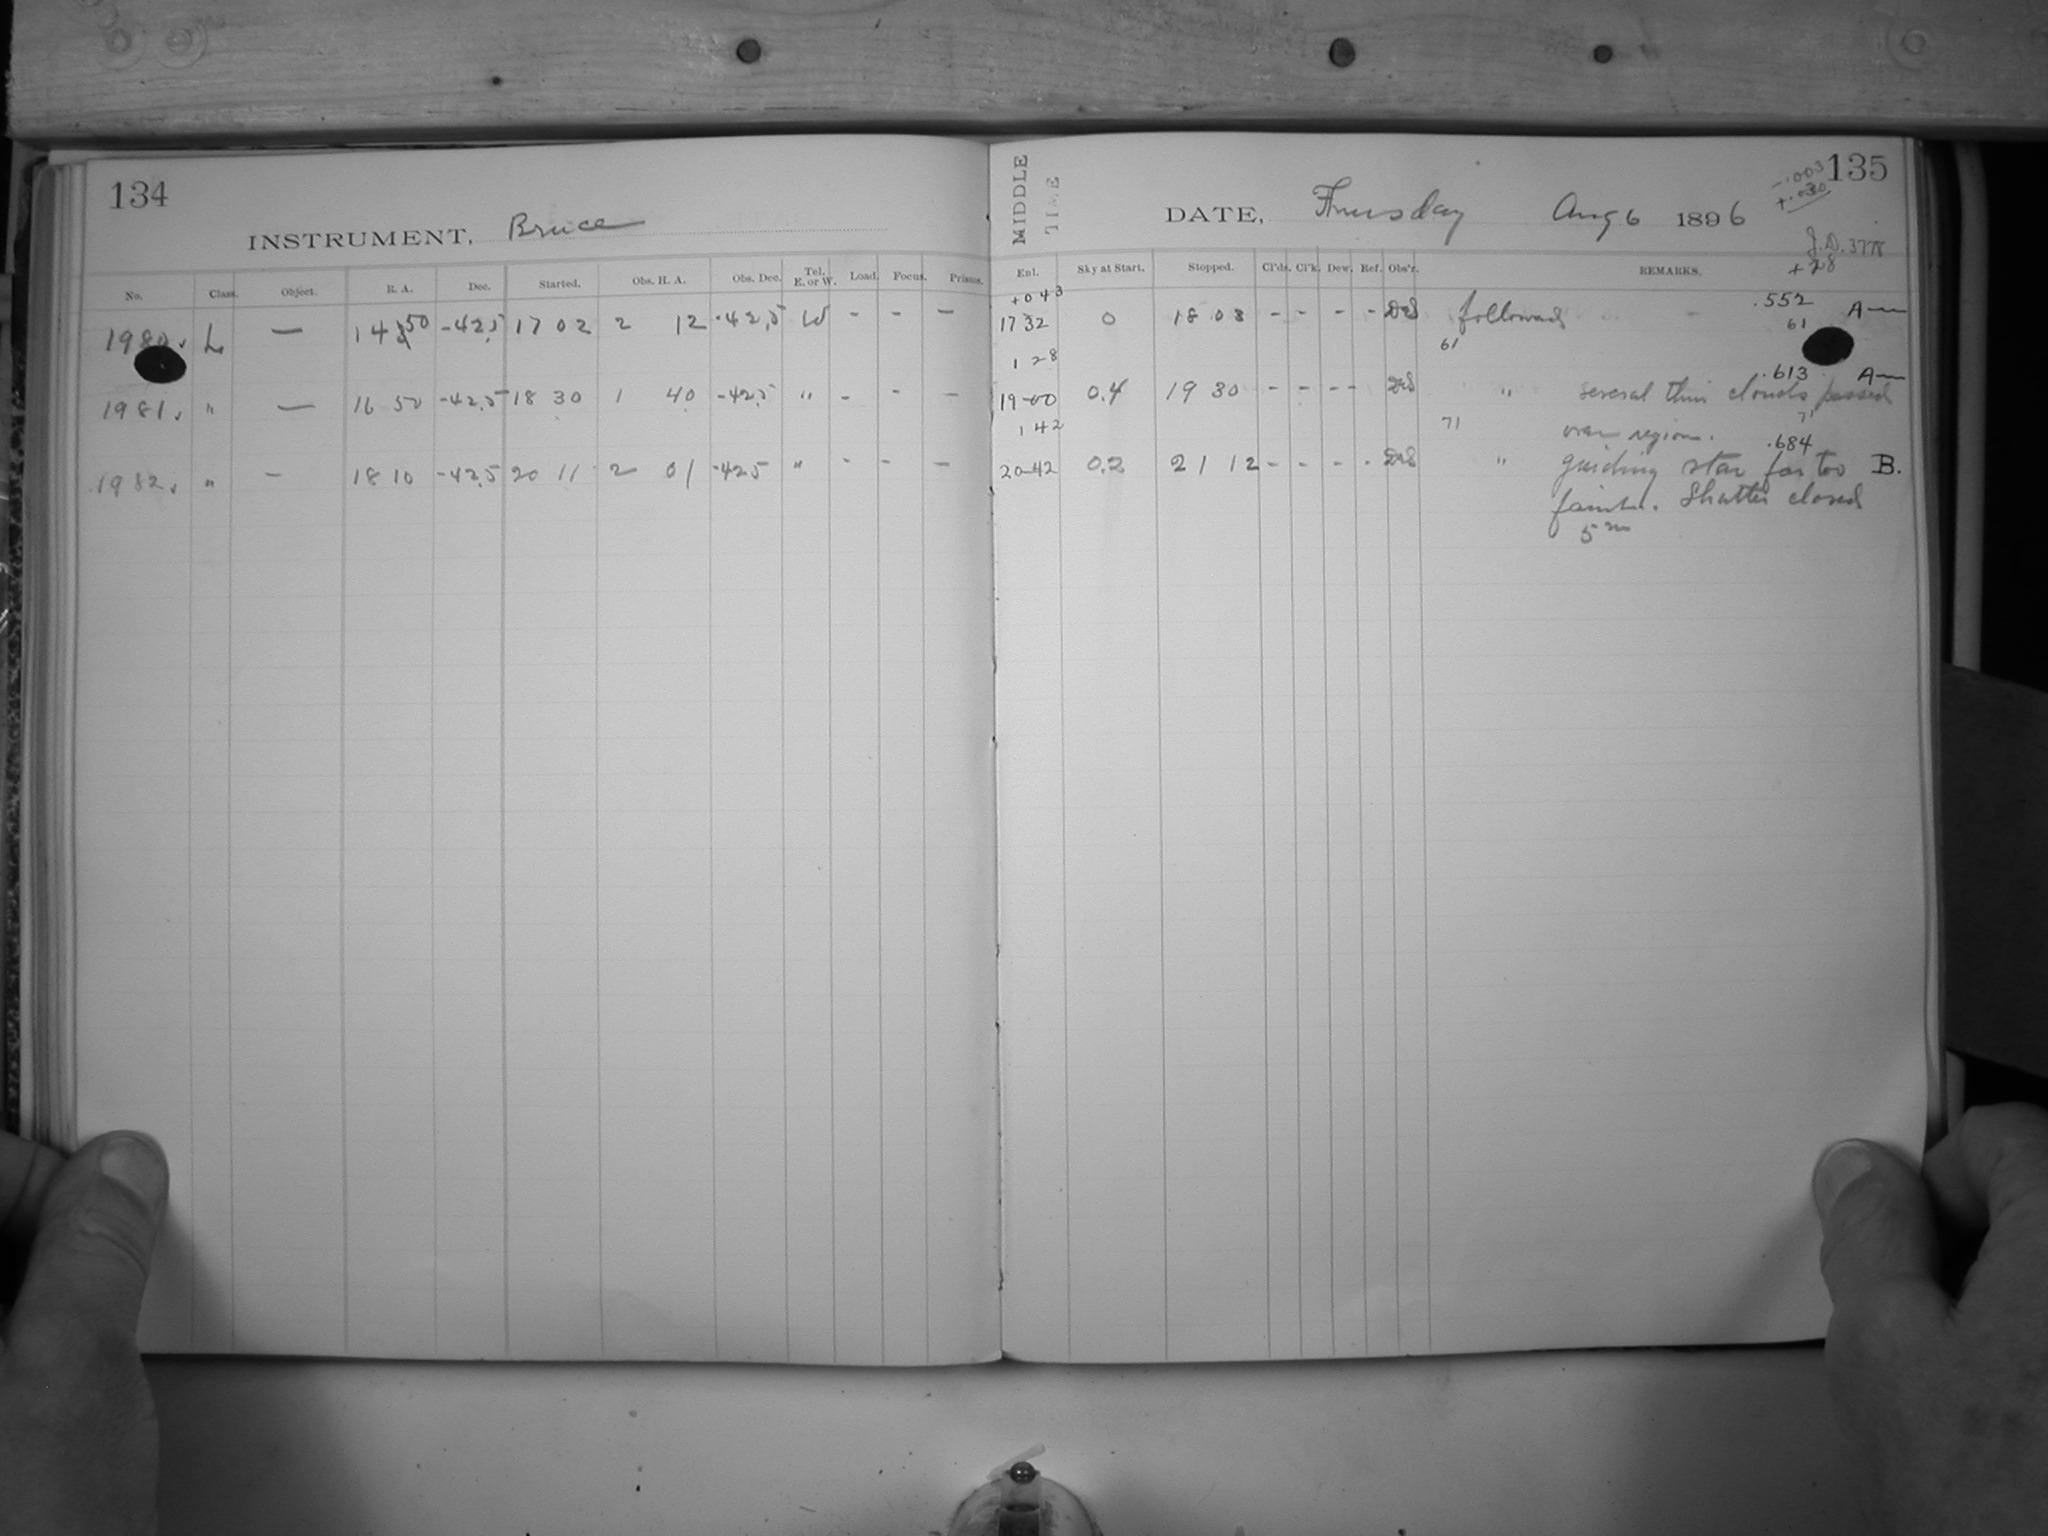 134
INSTRUMENT, Bruce
No. Class. Object. R. A. Dec. Started. Obs. H. A. Obs. Dec. Tel. E. or W. Load. Focus. Prisms.
1980. L — 14 50 -42.5 17 02 2 12 -42.5 W - - -
1981. " — 16 50 -42.5 18 30 1 40 -42.5 " - - -
1982. " — 18 10 -42.5 20 11 2 01 -42.5 " - - -
MIDDLE TIME
135
-.003
+.030
DATE, Thursday Aug 6 1896
J.D. 3778
+28
Enl. Sky at Start. Stopped. Cl'ds. Cl'k. Dew. Ref. Obs'r. REMARKS.
+0 43 .552
17 32 0 18 03 - - - - followed A—
61 61
1 28 .613
19-00 0.4 19 30 - - - - " several thin clouds passed A—
1 42 71 over region. 71
.684
20-42 0.2 21 12 - - - - " guiding star far too B.
faint. Shutter closed
5 m